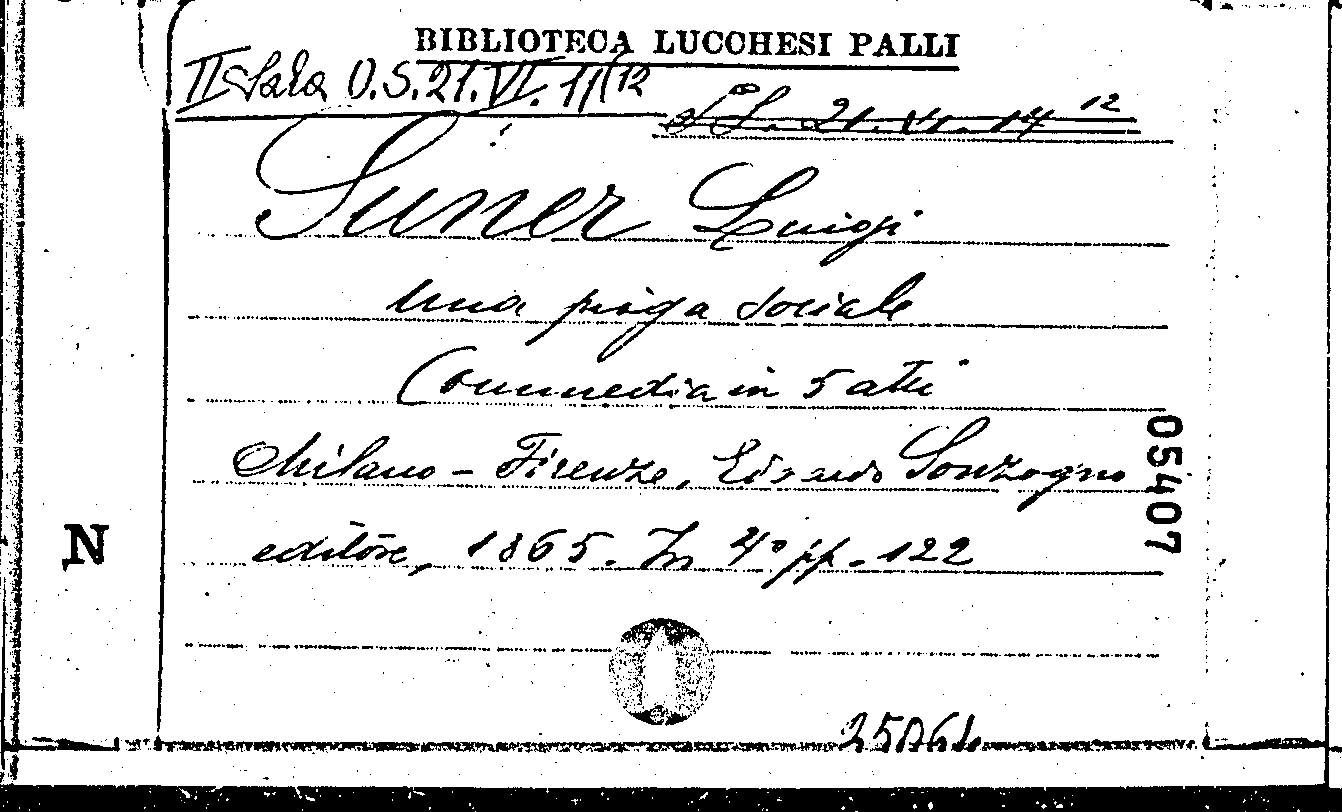 BIBLIOTECA LUCCHESI PALLI
II Sala O.S.21.VI.11(12
21.VI.14 12
Suner Luigi
Una piaga sociale
Commedia in 5 atti
Milano - Firenze, Edoardo Sonzogno
editore, 1865. In 4° pp. 122
05407
N